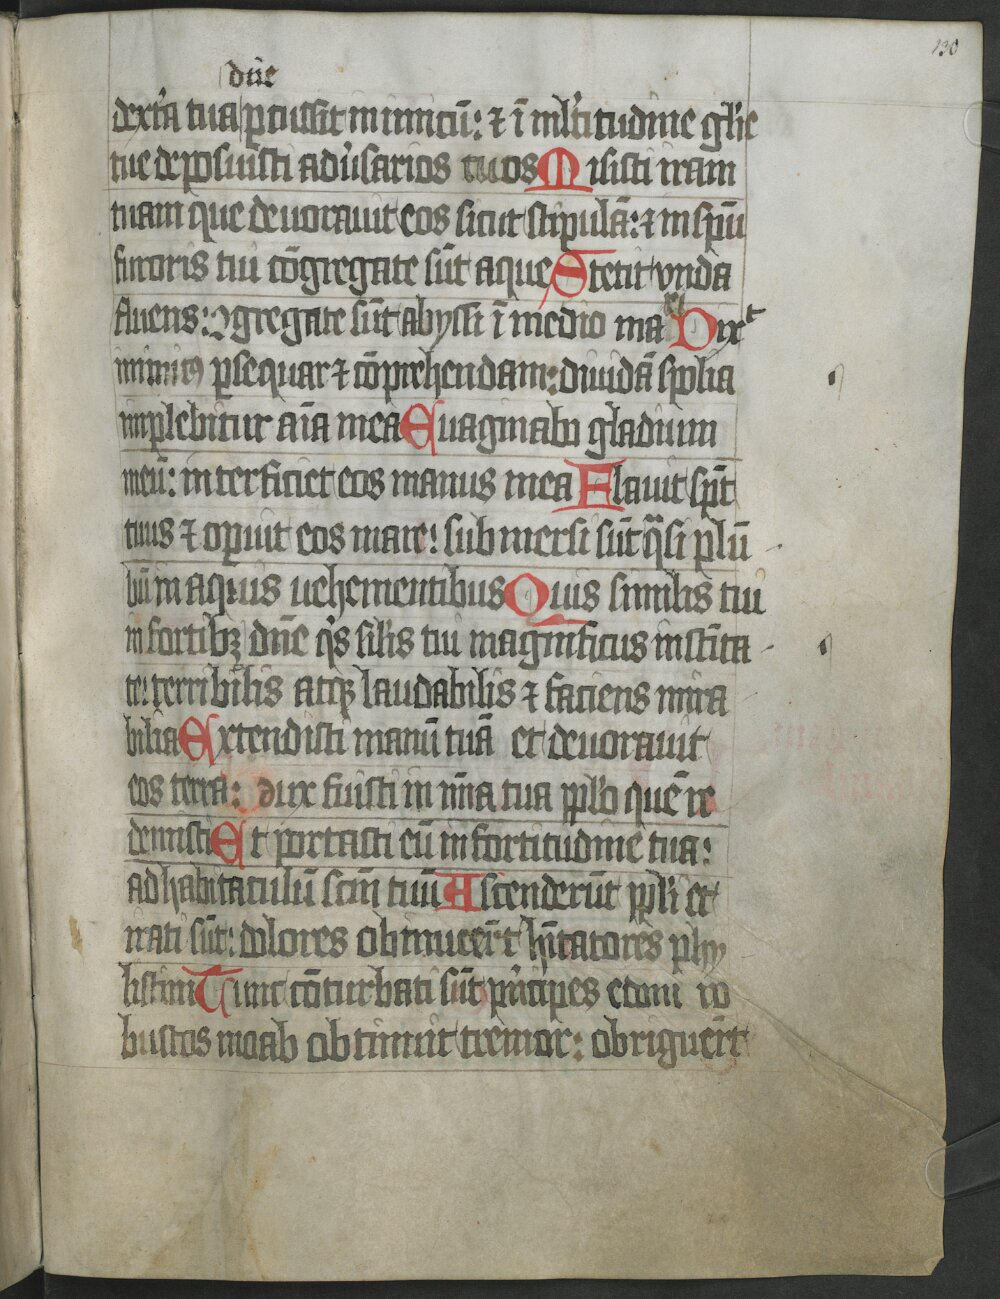 130
dn̄e
dext̾a tua ꝑcussit inimicū: ⁊ ī ml̾titudine gl̾ie
tue deposuisti adu̾sarios tuos Misisti iram
tuam que deuorauit eos sicut stipulā: ⁊ in sp̄u
furoris tui cōgregate sūt aque Stetit vnda
fluens: ꝯgregate sūt abyssi ī medio mari Dixit
inimicꝰ ꝑsequar ⁊ cōprehendam: diuidā spolia
implebitur aīa mea Euaginabo gladium
meū: interficiet eos manus mea Flauit sp̄c
tuus ⁊ oꝑuit eos mare: submersi sūt qͣsi plū
bū in aquis uehementibus Quis similis tui
in fortibꝫ dn̄e qͥs silīs tui magnificus in scīta
te: terribilis atqꝫ laudabilis ⁊ faciens mira
bilia Extendisti manū tuā et deuorauit
eos terra: dux fuisti in mīa tua ppl̾o quē re
demisti Et portasti eū in fortitudine tua:
ad habitaculū scm̄ tuū Ascenderūt ppl̾i et
irati sūt: dolores obtinuer̄t hītatores phy
listim Tunc cōturbati sūt pͥncipes edom ro
bustos moab obtinuit tremor: obriguer̄t